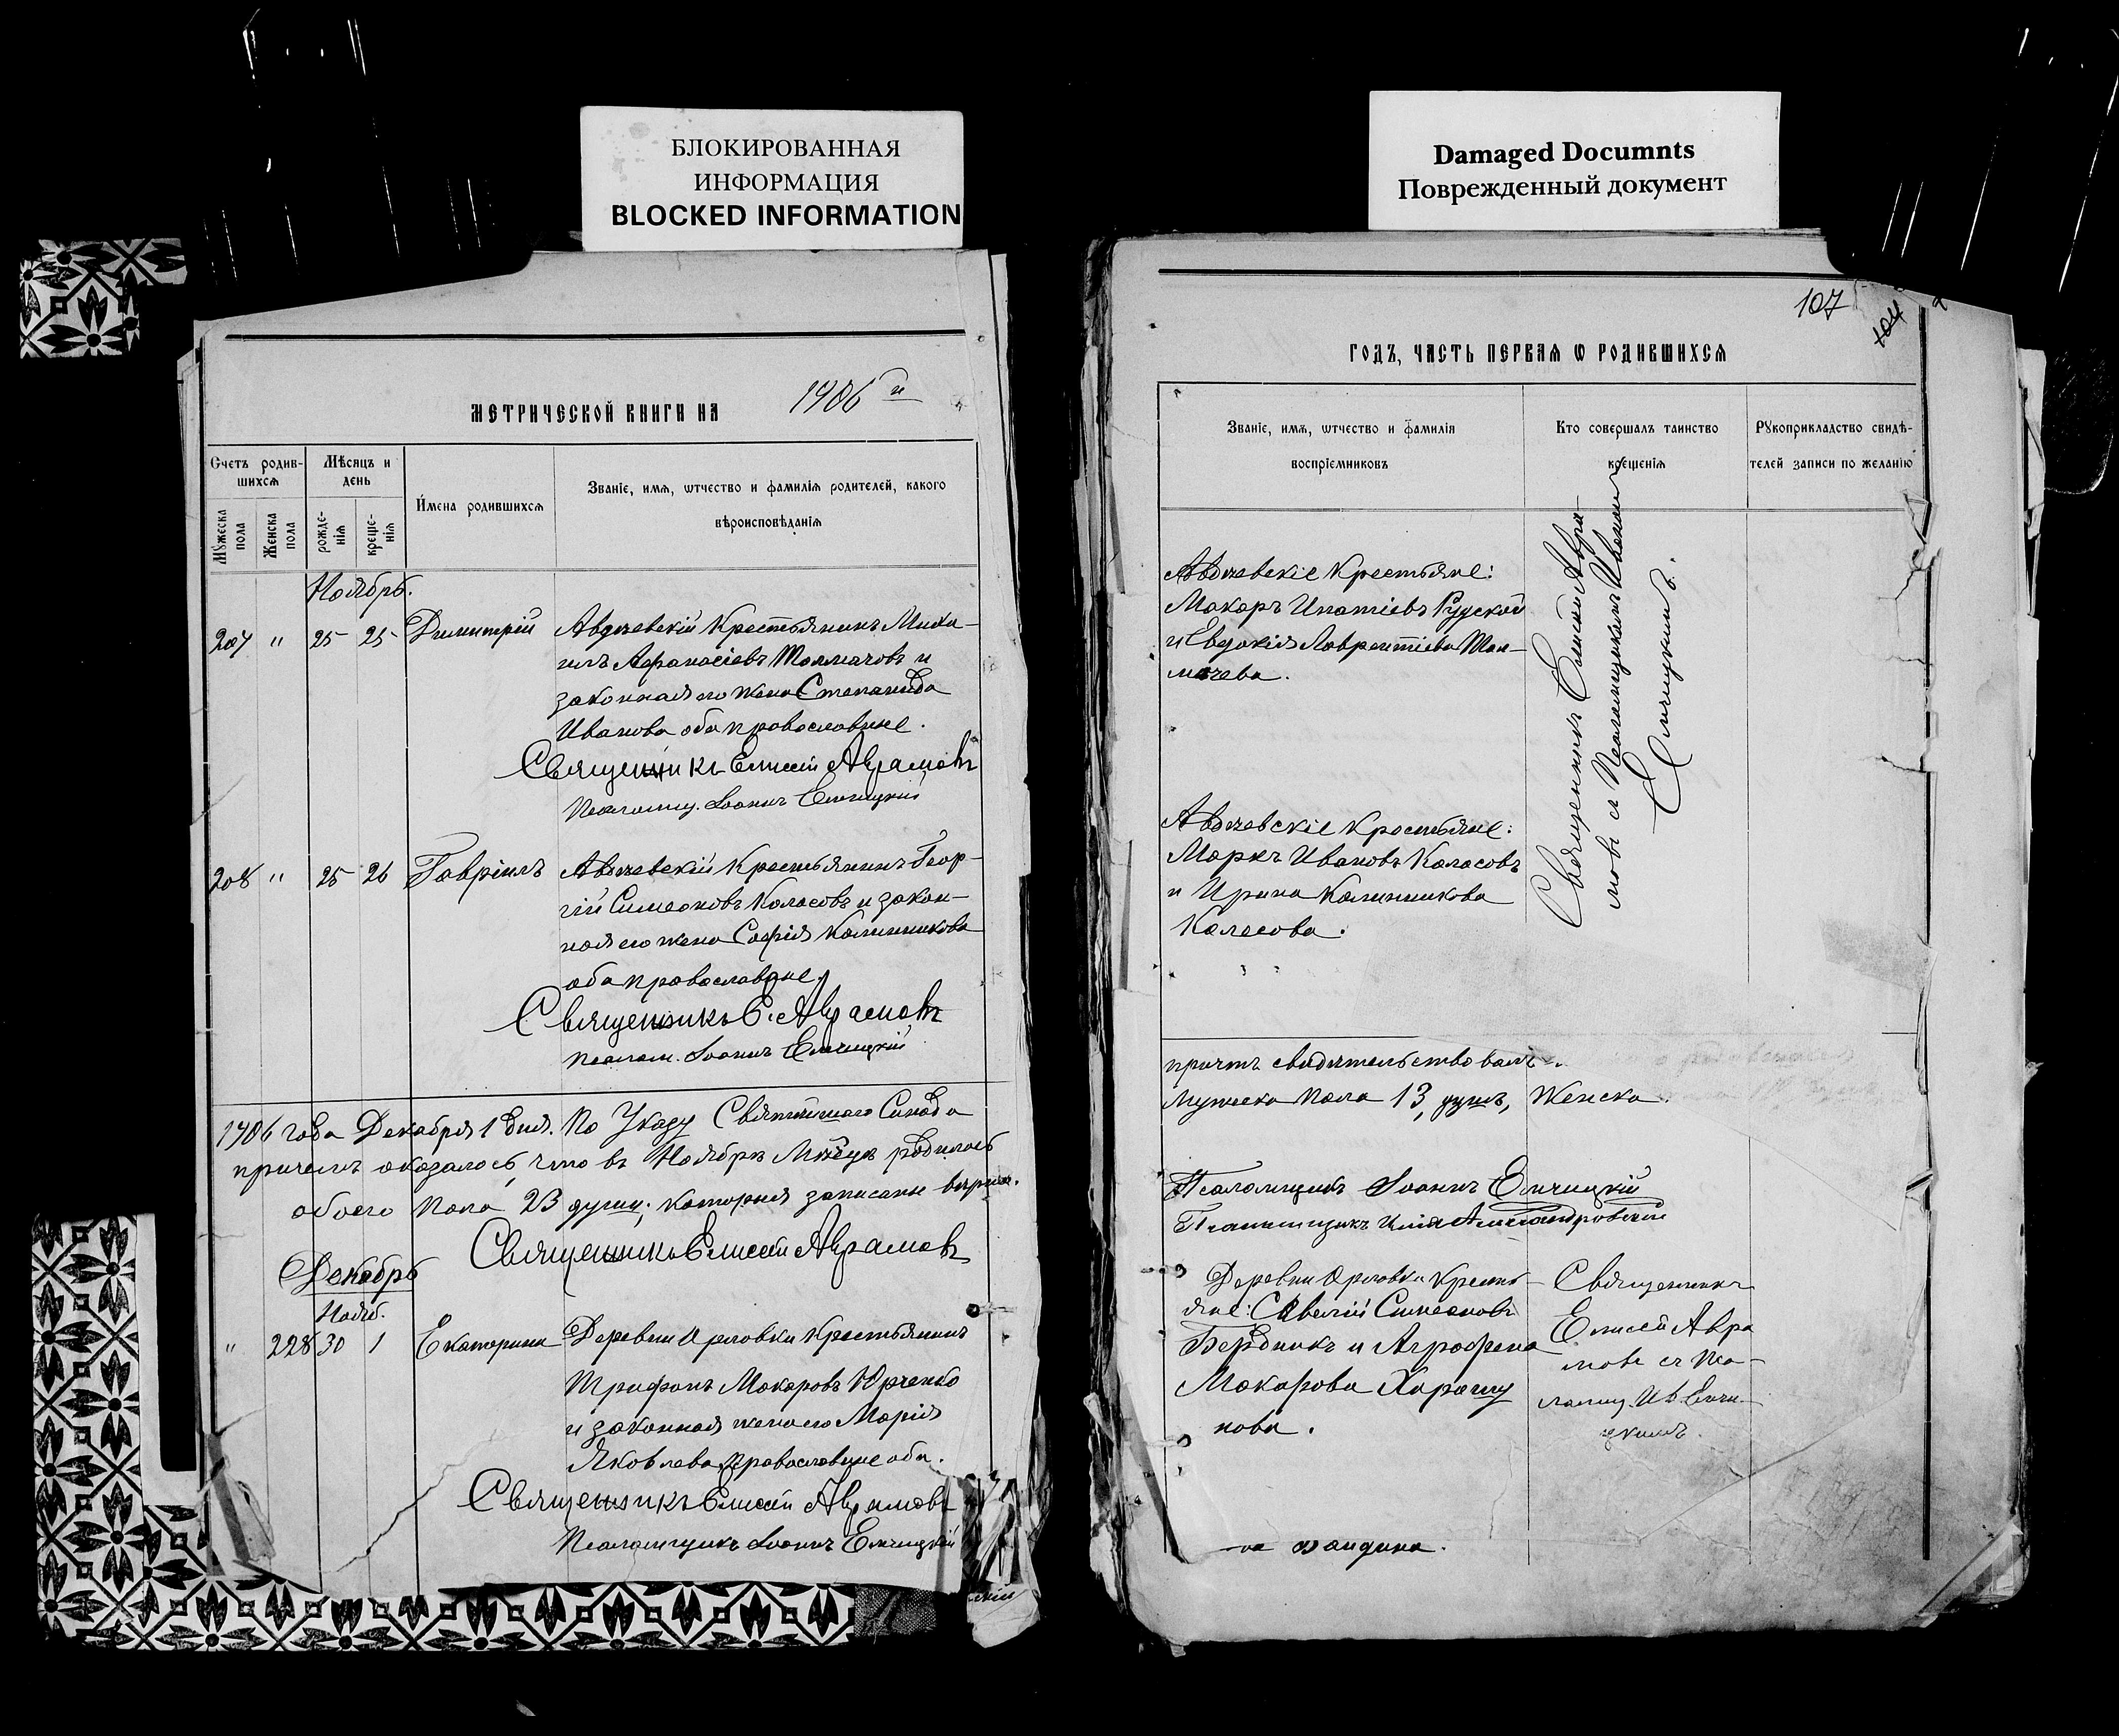 БЛОКИРОВАННАЯ
ИНФОРМАЦИЯ
BLOCKED INFORMATION
Damaged Documnts
Поврежденный документ
МЕТРИЧЕСКОЙ КНИГИ НА 1906 й
Счетъ родив-
шихсѧ
Мѣсяцъ и
день
Мꙋжеска
пола
Женска
пола
рожде-
нїѧ
креще-
нїѧ
Имена родившихсѧ
Званїе, имѧ, ѡтчество и фамилїѧ родителей, какого
вѣроисповѣданїѧ
Ноябрь.
207 " 25 25 Димитрій
Авдѣевскій Крестьянинъ Миха-
илъ Афанасіевъ Толмачовъ и
законная его жена Степанида
Иванова оба православные.
Священникъ Елисей Аврамовъ
Псаломщ. Іоаннъ Ельчицкій
208 " 25 26 Гавріилъ
Авдѣевскій Крестьянинъ Геор-
гій Симеоновъ Колосовъ и закон-
ная его жена Софія Калинникова
оба православные.
Священникъ Е. Аврамовъ
псалом. Іоаннъ Ельчицкій
1906 года Декабря 1 дня. По Указу Святѣйшаго Синода
причемъ оказалось, что въ Ноябрѣ Мѣсяцѣ родилось
обоего пола 23 души; которыя записаны вѣрно.
Священникъ Елисей Аврамовъ
Декабрь
Нояб.
" 228 30 1 Екатерина
Деревни Орловки Крестьянинъ
Трифонъ Макаровъ Юрченко
и законная жена его Марія
Яковлева, православные оба.
Священникъ Елисей Аврамовъ
Псаломщикъ Іоаннъ Ельчицкій
107
104
ГОДЪ, ЧАСТЬ ПЕРВАѦ Ѡ РОДИВШИХСѦ
Званїе, имѧ, ѡтчество и фамилїѧ
воспрїемниковъ
Кто совершалъ таинство
крещенїѧ
Рꙋкоприкладство свидѣ-
телей записи по желанїю
Авдѣевскіе Крестьяне:
Макаръ Ипатіевъ Рудской
и Евдокія Лаврентіева Тол-
мачева.
Авдѣевскіе Крестьяне:
Маркъ Ивановъ Колосовъ
и Ирина Калинникова
Колосова.
Священникъ Елисей Авра-
мовъ съ Псаломщикомъ Иваномъ
Ельчицкимъ.
причтъ свидѣтельствовалъ.
Мужеска пола 13, душъ, Женска
Псаломщикъ Іоаннъ Ельчицкій
Деревни Орловки Кресть-
яне: Савелій Симеоновъ
Бердникъ и Агрофена
Макарова Харашу
нова.
Священникъ
Елисей Авра
мовъ съ Пса-
ломщ. Ив. Ельчи-
цкимъ.